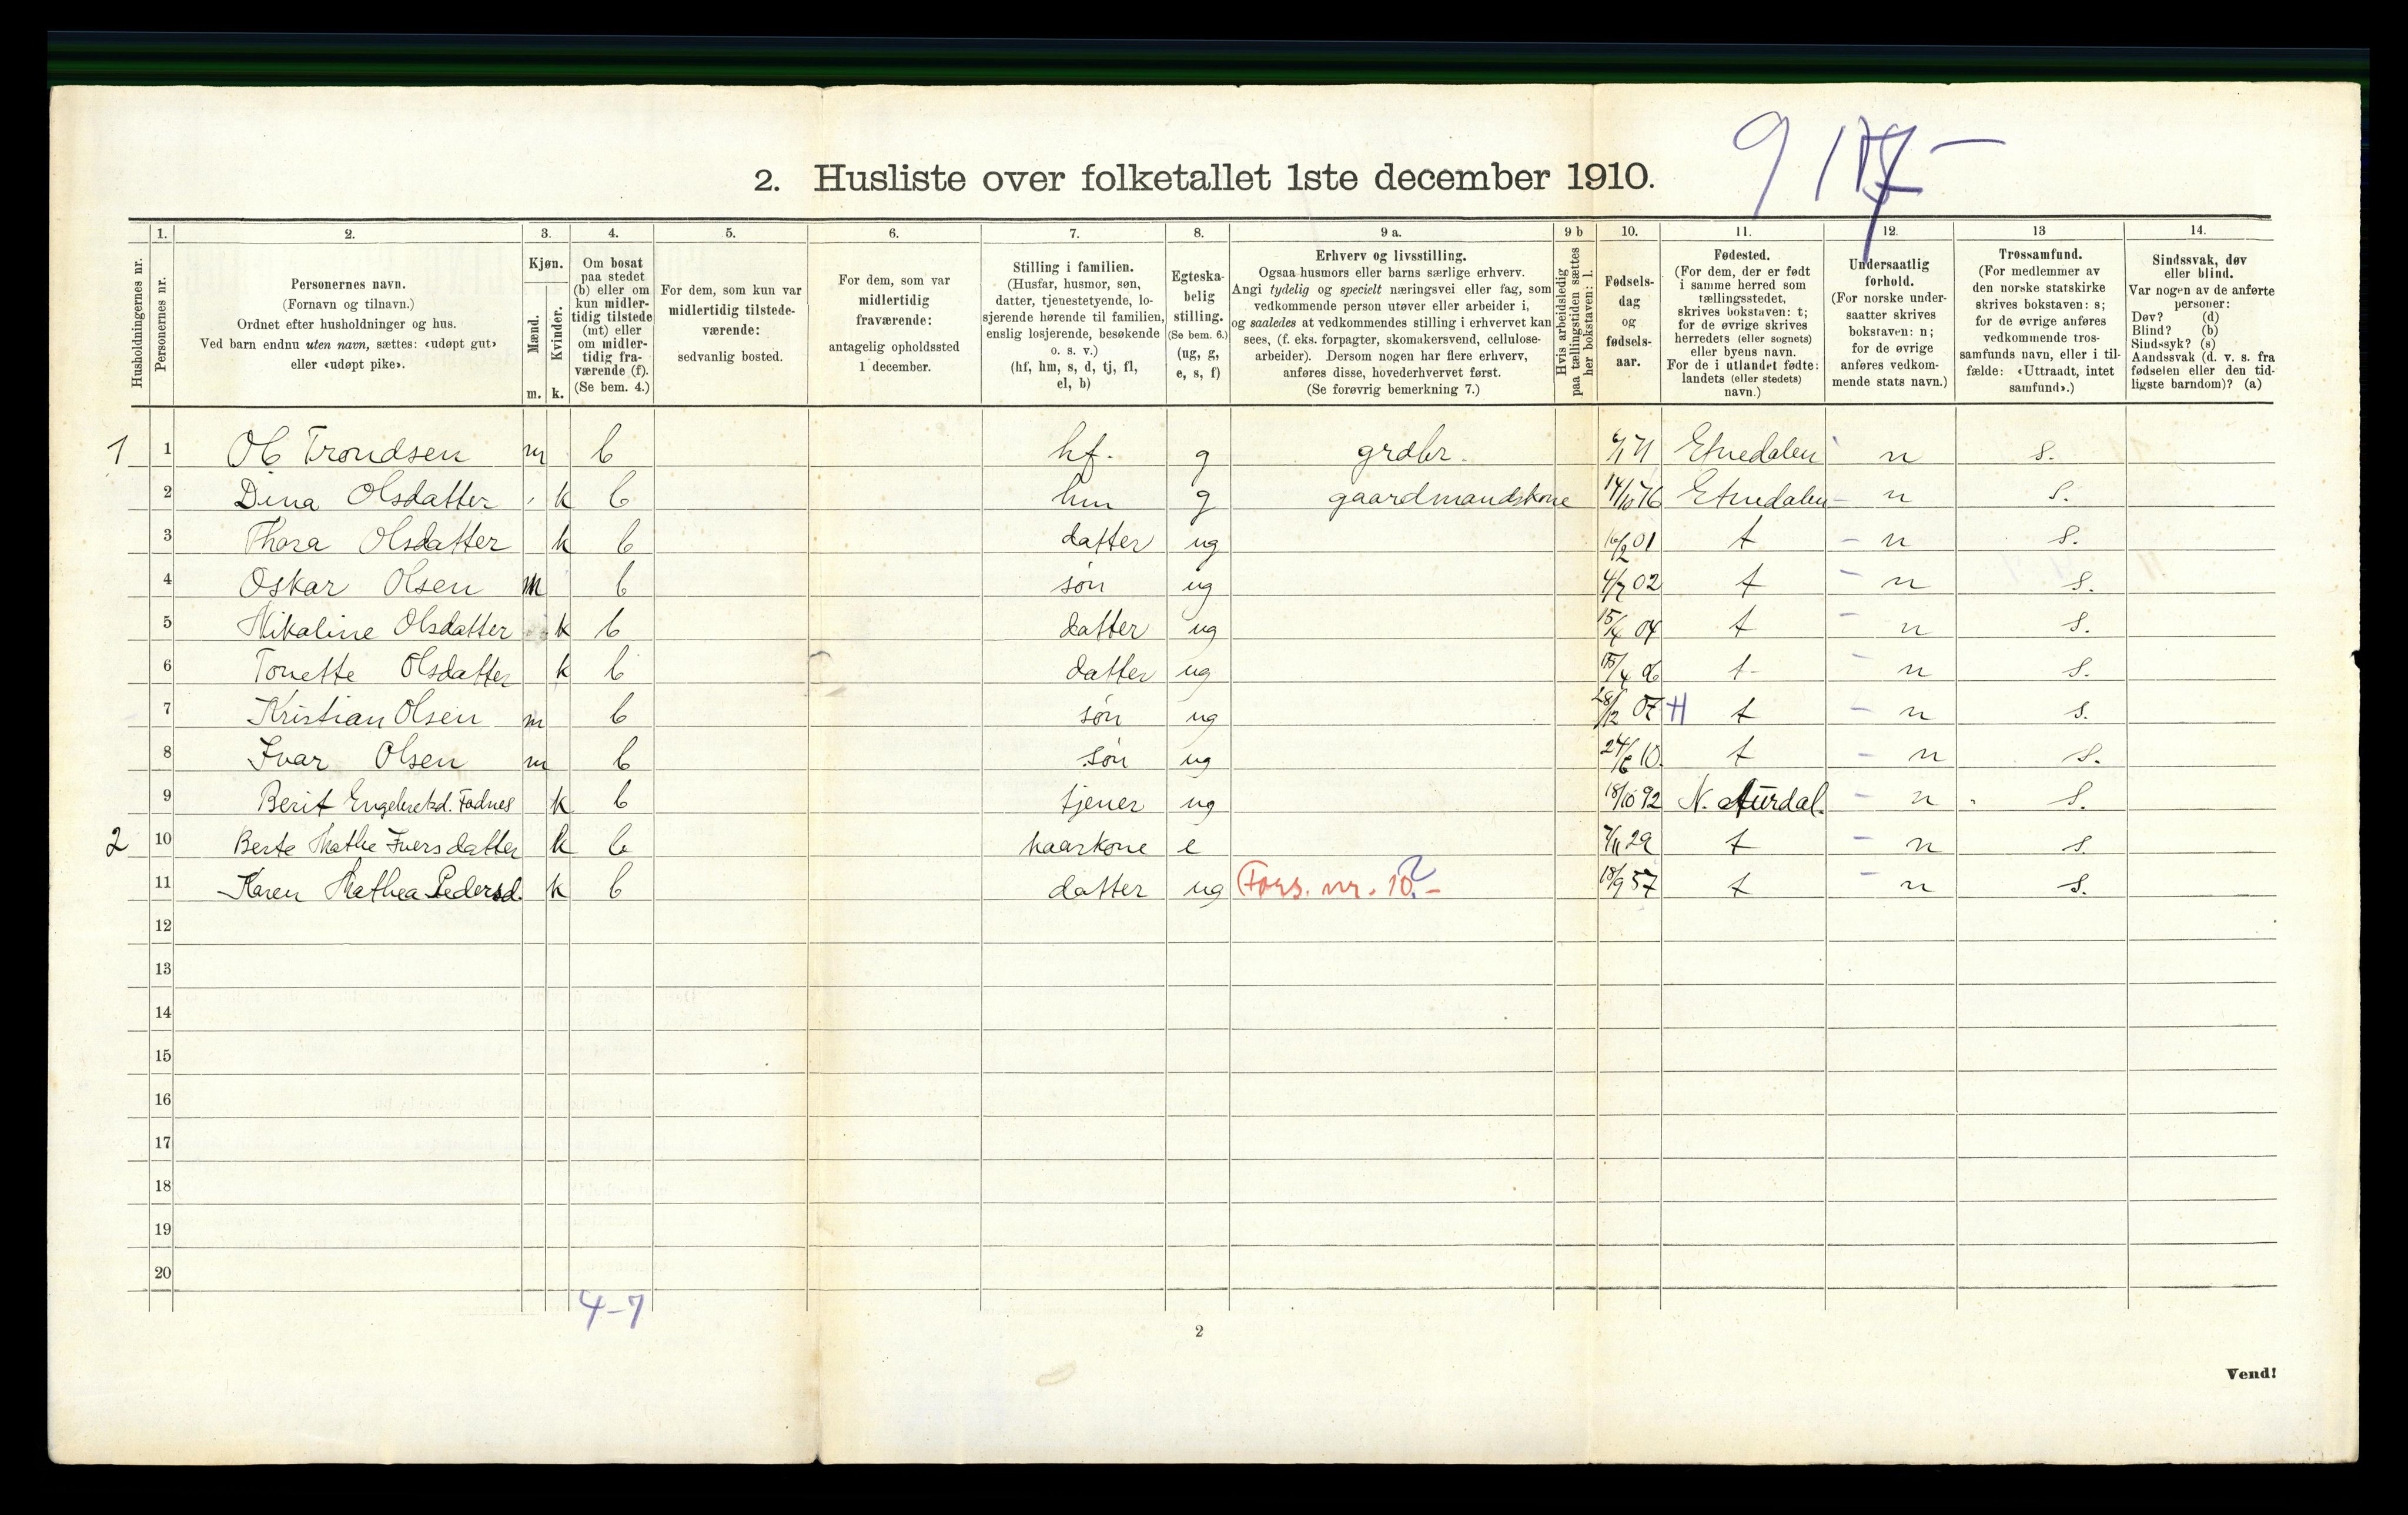 9 17 –
2. Husliste over folketallet 1ste december 1910.
Husholdningernes nr.
1. Personernes nr.
2. Personernes navn. (Fornavn og tilnavn.) Ordnet efter husholdninger og hus. Ved barn endnu uten navn, sættes: «udøpt gut» eller «udøpt pike».
3. Kjøn. Mænd. m. Kvinder. k.
4. Om bosat paa stedet (b) eller om kun midlertidig tilstede (mt) eller om midlertidig fraværende (f). (Se bem. 4.)
5. For dem, som kun var midlertidig tilstedeværende: sedvanlig bosted.
6. For dem, som var midlertidig fraværende: antagelig opholdssted 1 december.
7. Stilling i familien. (Husfar, husmor, søn, datter, tjenestetyende, losjerende hørende til familien, enslig losjerende, besøkende o. s. v.) (hf, hm, s, d, tj, fl, el, b)
8. Egteskabelig stilling. (Se bem. 6.) (ug, g, e, s, f)
9 a. Erhverv og livsstilling. Ogsaa husmors eller barns særlige erhverv. Angi tydelig og specielt næringsvei eller fag, som vedkommende person utøver eller arbeider i, og saaledes at vedkommendes stilling i erhvervet kan sees, (f. eks. forpagter, skomakersvend, cellulosearbeider). Dersom nogen har flere erhverv, anføres disse, hovederhvervet først. (Se forøvrig bemerkning 7.)
9 b Hvis arbeidsledig paa tællingstiden sættes her bokstaven: l.
10. Fødselsdag og fødselsaar.
11. Fødested. (For dem, der er født i samme herred som tællingsstedet, skrives bokstaven: t; for de øvrige skrives herredets (eller sognets) eller byens navn. For de i utlandet fødte: landets (eller stedets) navn.)
12. Undersaatlig forhold. (For norske undersaatter skrives bokstaven: n; for de øvrige anføres vedkommende stats navn.)
13 Trossamfund. (For medlemmer av den norske statskirke skrives bokstaven: s; for de øvrige anføres vedkommende trossamfunds navn, eller i tilfælde: «Uttraadt, intet samfund».)
14. Sindssvak, døv eller blind. Var nogen av de anførte personer: Døv? (d) Blind? (b) Sindssyk? (s) Aandssvak (d. v. s. fra fødselen eller den tidligste barndom)? (a)
1 1 Ol Trondsen m b hf. g grdbr. 71 Etnedalen n s.
2 Dina Olsdatter k b hm g gaardmandskone 14/10 76 Etnedalen – n s.
3 Thora Olsdatter k b datter ug 16/2 01 t – n s.
4 Oskar Olsen m b søn ug 4/7 02 t – n s.
5 Mikaline Olsdatter k b datter ug 15/4 04 t – n s.
6 Tonette Olsdatter k b datter ug 15/4 06 t – n s.
7 Kristian Olsen m b søn ug 28/12 07 H t – n s.
8 Ivar Olsen m b søn ug 24/6 10. t – n s.
9 Berit Engebretsd. Fodnes k b tjener ug 18/10 92 N. Aurdal. – n s.
2 10 Berte Mathe Iversdatter k b kaarkone e 7/11 29 t – n s.
11 Karen Mathea Pedersd. k b datter ug Fors. nr. 10. – ? 18/9 57 t – n s.
12
13
14
15
16
17
18
19
20
4–7
2
Vend!